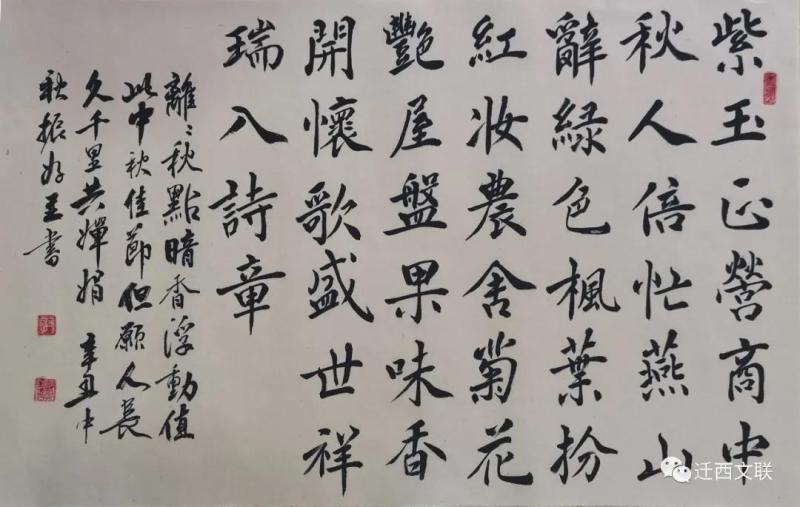 紫玉正營商中
秋人倍忙燕山
辭緑色楓葉扮
紅妆農舍菊花
艷屋盤果味香
開懷歌盛世祥
瑞入詩章
離〻秋點暗香浮動值
此中秋佳節但願人長
久千里共嬋娟 辛丑中
秋振王書
迁西文联